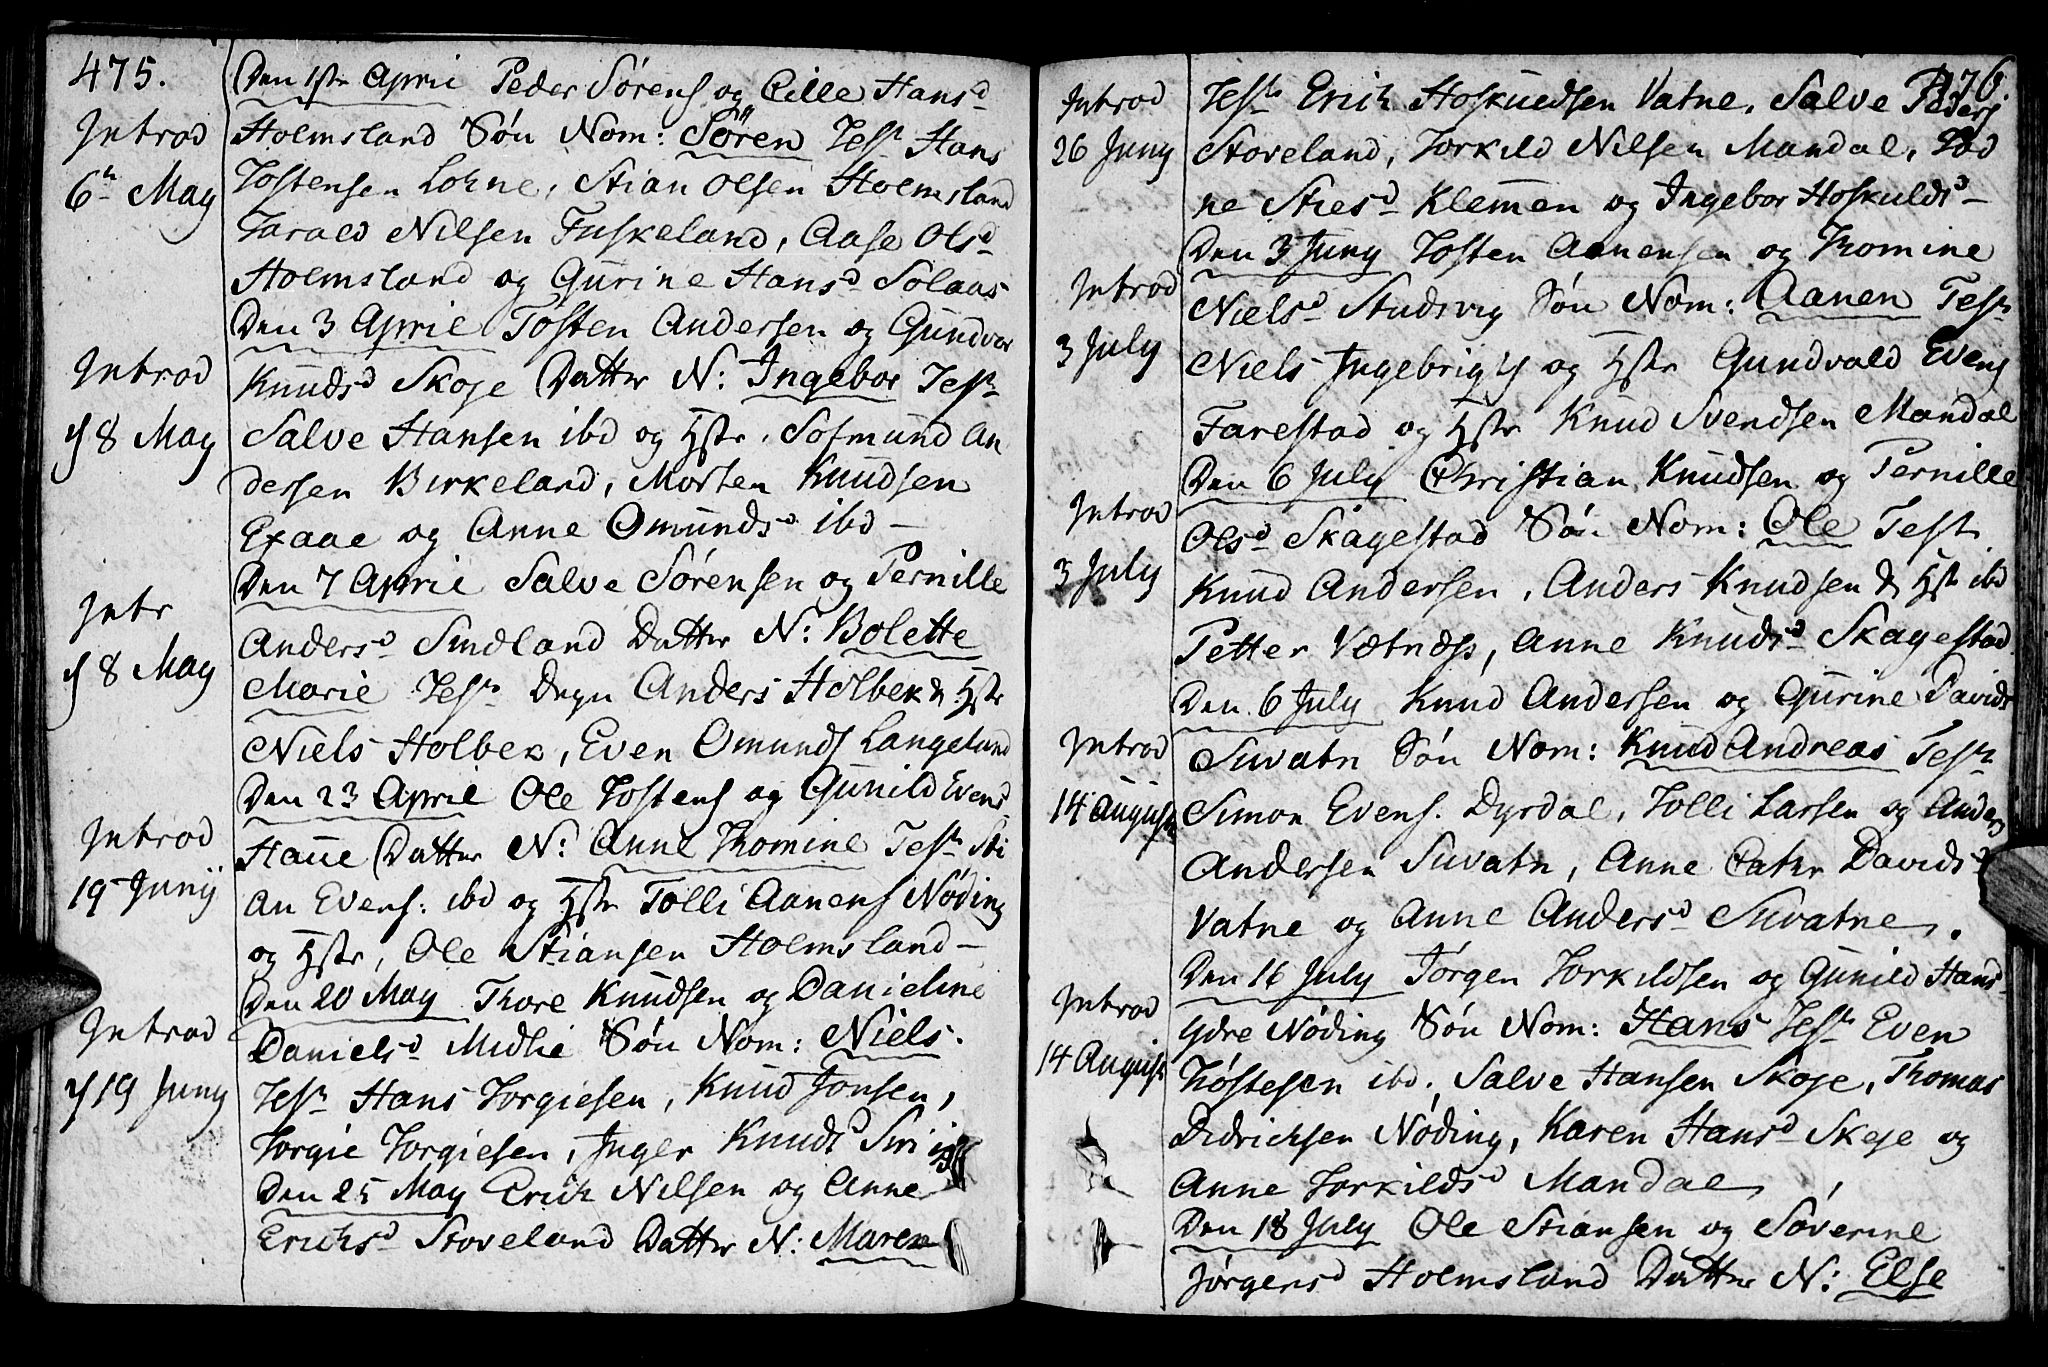 475.
Den 1ste April Peder Sörens og Cille Hansd
Introd
Holmsland Sön Nom: Sören Test Hans
6te May
Tostensen Lohne, Stian Olsen Holmsland
Tarald Nilsen Fuskeland, Aase Olsd
Holmsland og Gurine Hansd Solaas
Den 3 April Tosten Andersen og Gundvor
Introd
Knudsd Skoje Datter N: Ingebor Test
d 8 May
Salve Hansen ibd og Hstr. Sofmund An
dersen Birkeland, Morten Knudsen
Exaae og Anne Omundsd ibd
Den 7 April Salve Sörensen og Pernille
Intr
Andersd Sindland Datter N: Bolette
d 8 May
Marie Test Degn Anders Holbek & Hstr
Niels Holbek, Even Omunds Langeland
Den 23 April Ole Tostens og Gunild Evensd
Introd
Haue Datter N: Anne Thomine Test Sti
19 Junij
an Evens: ibd og Hstr Tolli Aanens Nöding
og Hstr, Ole Stiansen Holmsland
Den 20 May Thore Knudsen og Danieline
Introd
Danielsd Midlie Sön Nom: Niels.
d 19 Juny
Test Hans Torgiesen, Knud Jonsen,
Torgie Torgiesen, Inger Knudsd
Den 25 May Erich Nilsen og Anne
Erichsd Stoveland Datter N: Maren
476.
Introd
Test Erich Hoskuldsen Vatne, Salve Peders
26 Juny
Stoveland, Torkild Nilsen Mandal, Tod
ne Stiesd Klemmen og Ingebor Hoskuldsd
Den 3 Juny Tosten Aanensen og Thomine
Introd
Nielsd Studsvig Sön Nom: Aanen Test
3 July
Niels Ingebrigts og Hstr Gundvald Evens
Farestad og Hstr Knud Svendsen Mandal
Den 6 July Christian Knudsen og Pernille
Introd
Olsd Skagestad Sön Nom: Ole Test
3 July
Knud Andersen, Anders Knudsen & Hstr ibd
Petter Vætnæss, Anne Knudsd Skagestad
Den 6 July Knud Andersen og Gurine Davids
Introd
Suvatn Sön Nom: Knud Andreas Test
14 August
Simon Evens. Dyrdal, Tolli Larsen og Anders
Andersen Suvatn, Anne Cathr Davidsd
Vatne og Anne Andersd Suvatne.
Den 16 July Jörgen Torkildsen og Gunild Hansd
Introd
Ydre Nöding Sön Nom: Hans Test Even
14 August
Töstesen ibd, Salve Hansen Skoje, Thomas
Didrichsen Nöding, Karen Hansd Skeje og
Anne Torkildsd Mandal
Den 18 July Ole Stiansen og Severine
Jörgensd Holmsland Datter N: Else